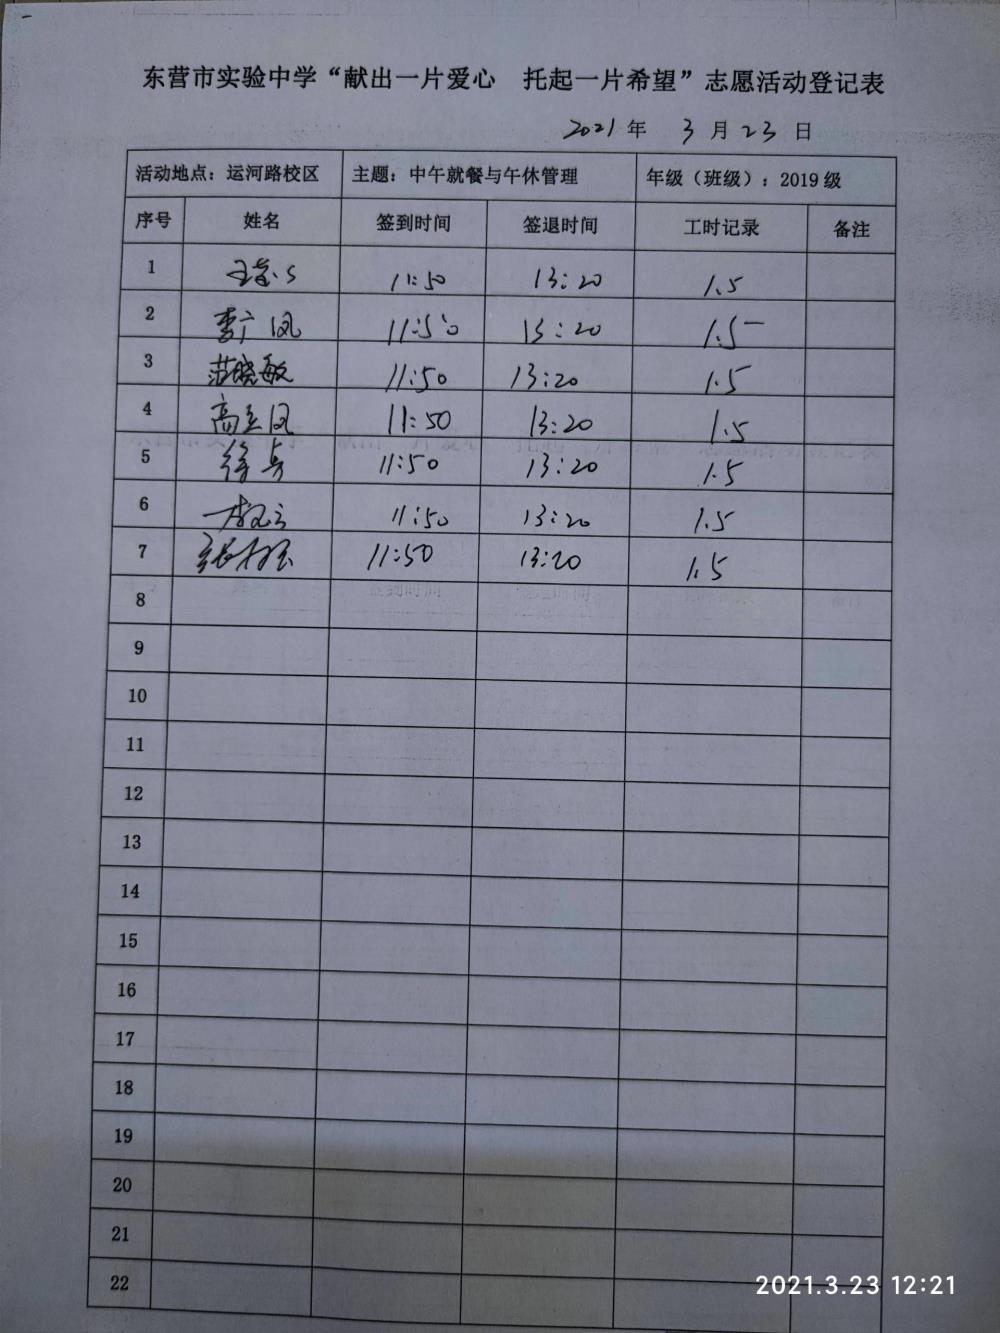 东营市实验中学“献出一片爱心 托起一片希望”志愿活动登记表
2021年 3月23日
活动地点：运河路校区 主题：中午就餐与午休管理 年级（班级）：2019级
序号 姓名 签到时间 签退时间 工时记录 备注
1 11:50 13:20 1.5
2 李广凤 11:50 13:20 1.5
3 范晓敏 11:50 13:20 1.5
4 高立凤 11:50 13:20 1.5
5 徐 11:50 13:20 1.5
6 11:50 13:20 1.5
7 张 11:50 13:20 1.5
8
9
10
11
12
13
14
15
16
17
18
19
20
21
22
2021.3.23 12:21